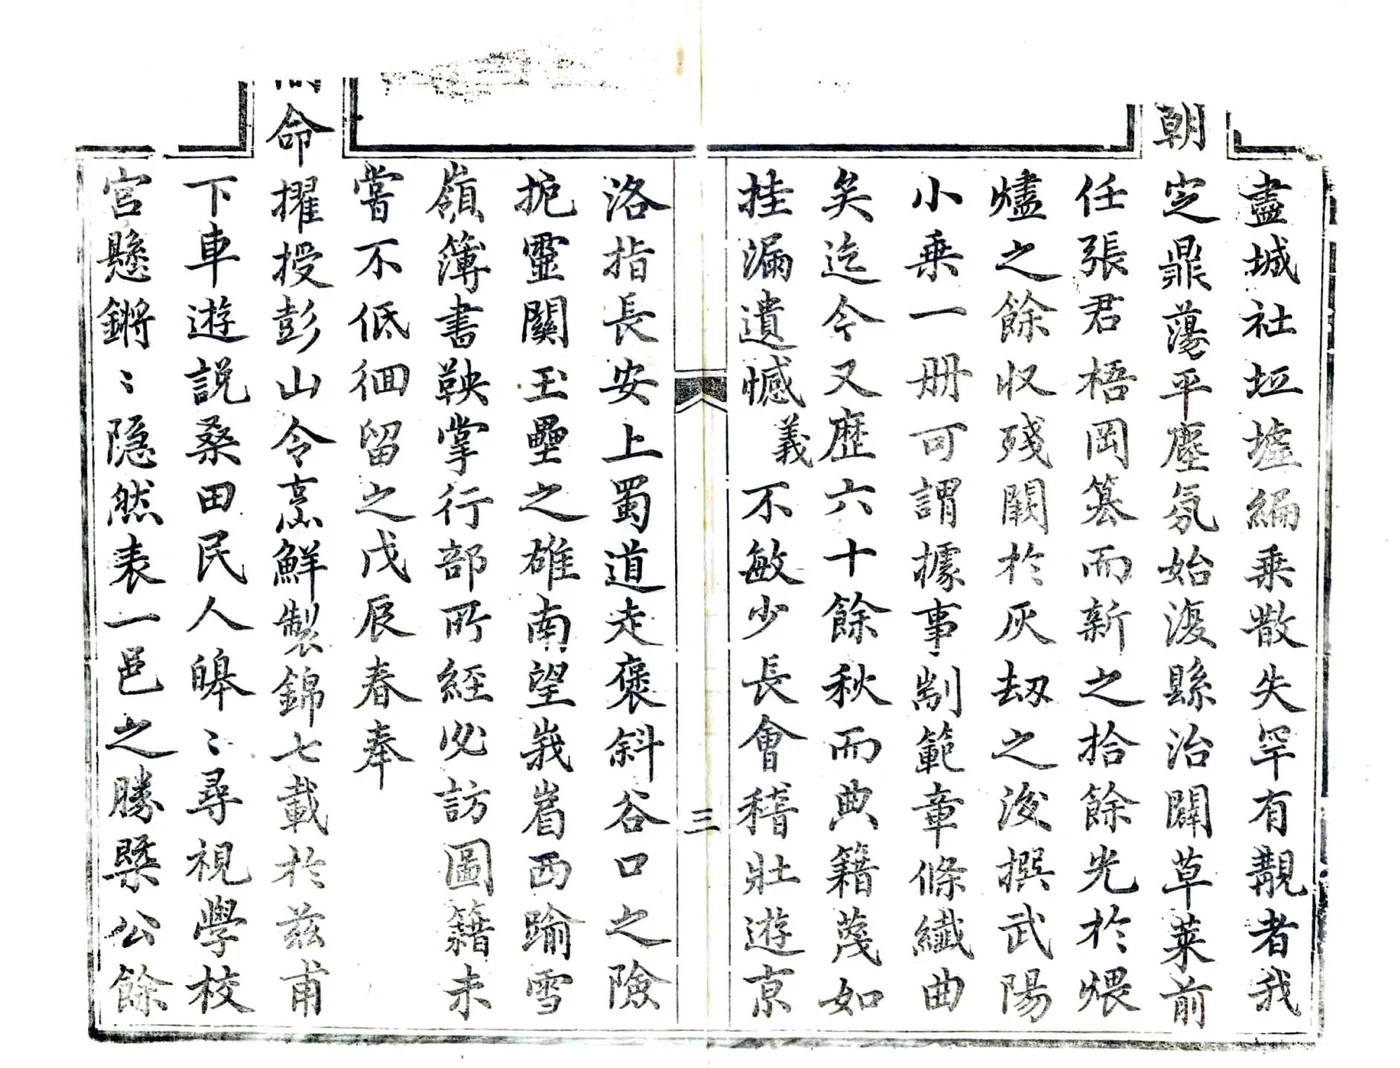 盡城社坵墟編乗散失罕有覯者我
朝定鼎蕩平塵氛始復縣治闢草萊前
任張君梧岡篡而新之拾餘光於煨
燼之餘収殘闕於灰刼之後撰武陽
小乗一册可謂據事剬範章條纖曲
矣迄今又歷六十餘秋而典籍蔑如
挂漏遺憾義不敏少長會稽壯遊京
三
洛指長安上蜀道走褒斜谷口之險
扼靈關玉壘之雄南望峩眉西踰雪
嶺簿書鞅掌行部所經必訪圖籍未
嘗不低徊留之戊辰春奉
命擢授彭山令烹鮮製錦七載於兹甫
下車遊說桑田民人皞〻尋視學校
宫懸鏘〻隐然表一邑之勝槩公餘